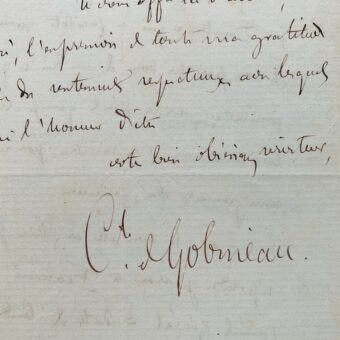 l'expression de toute ma gratitude
des sentiments respectueux avec lesquels
l'honneur d'être
votre bien obéissant serviteur,
Cte de Gobineau.